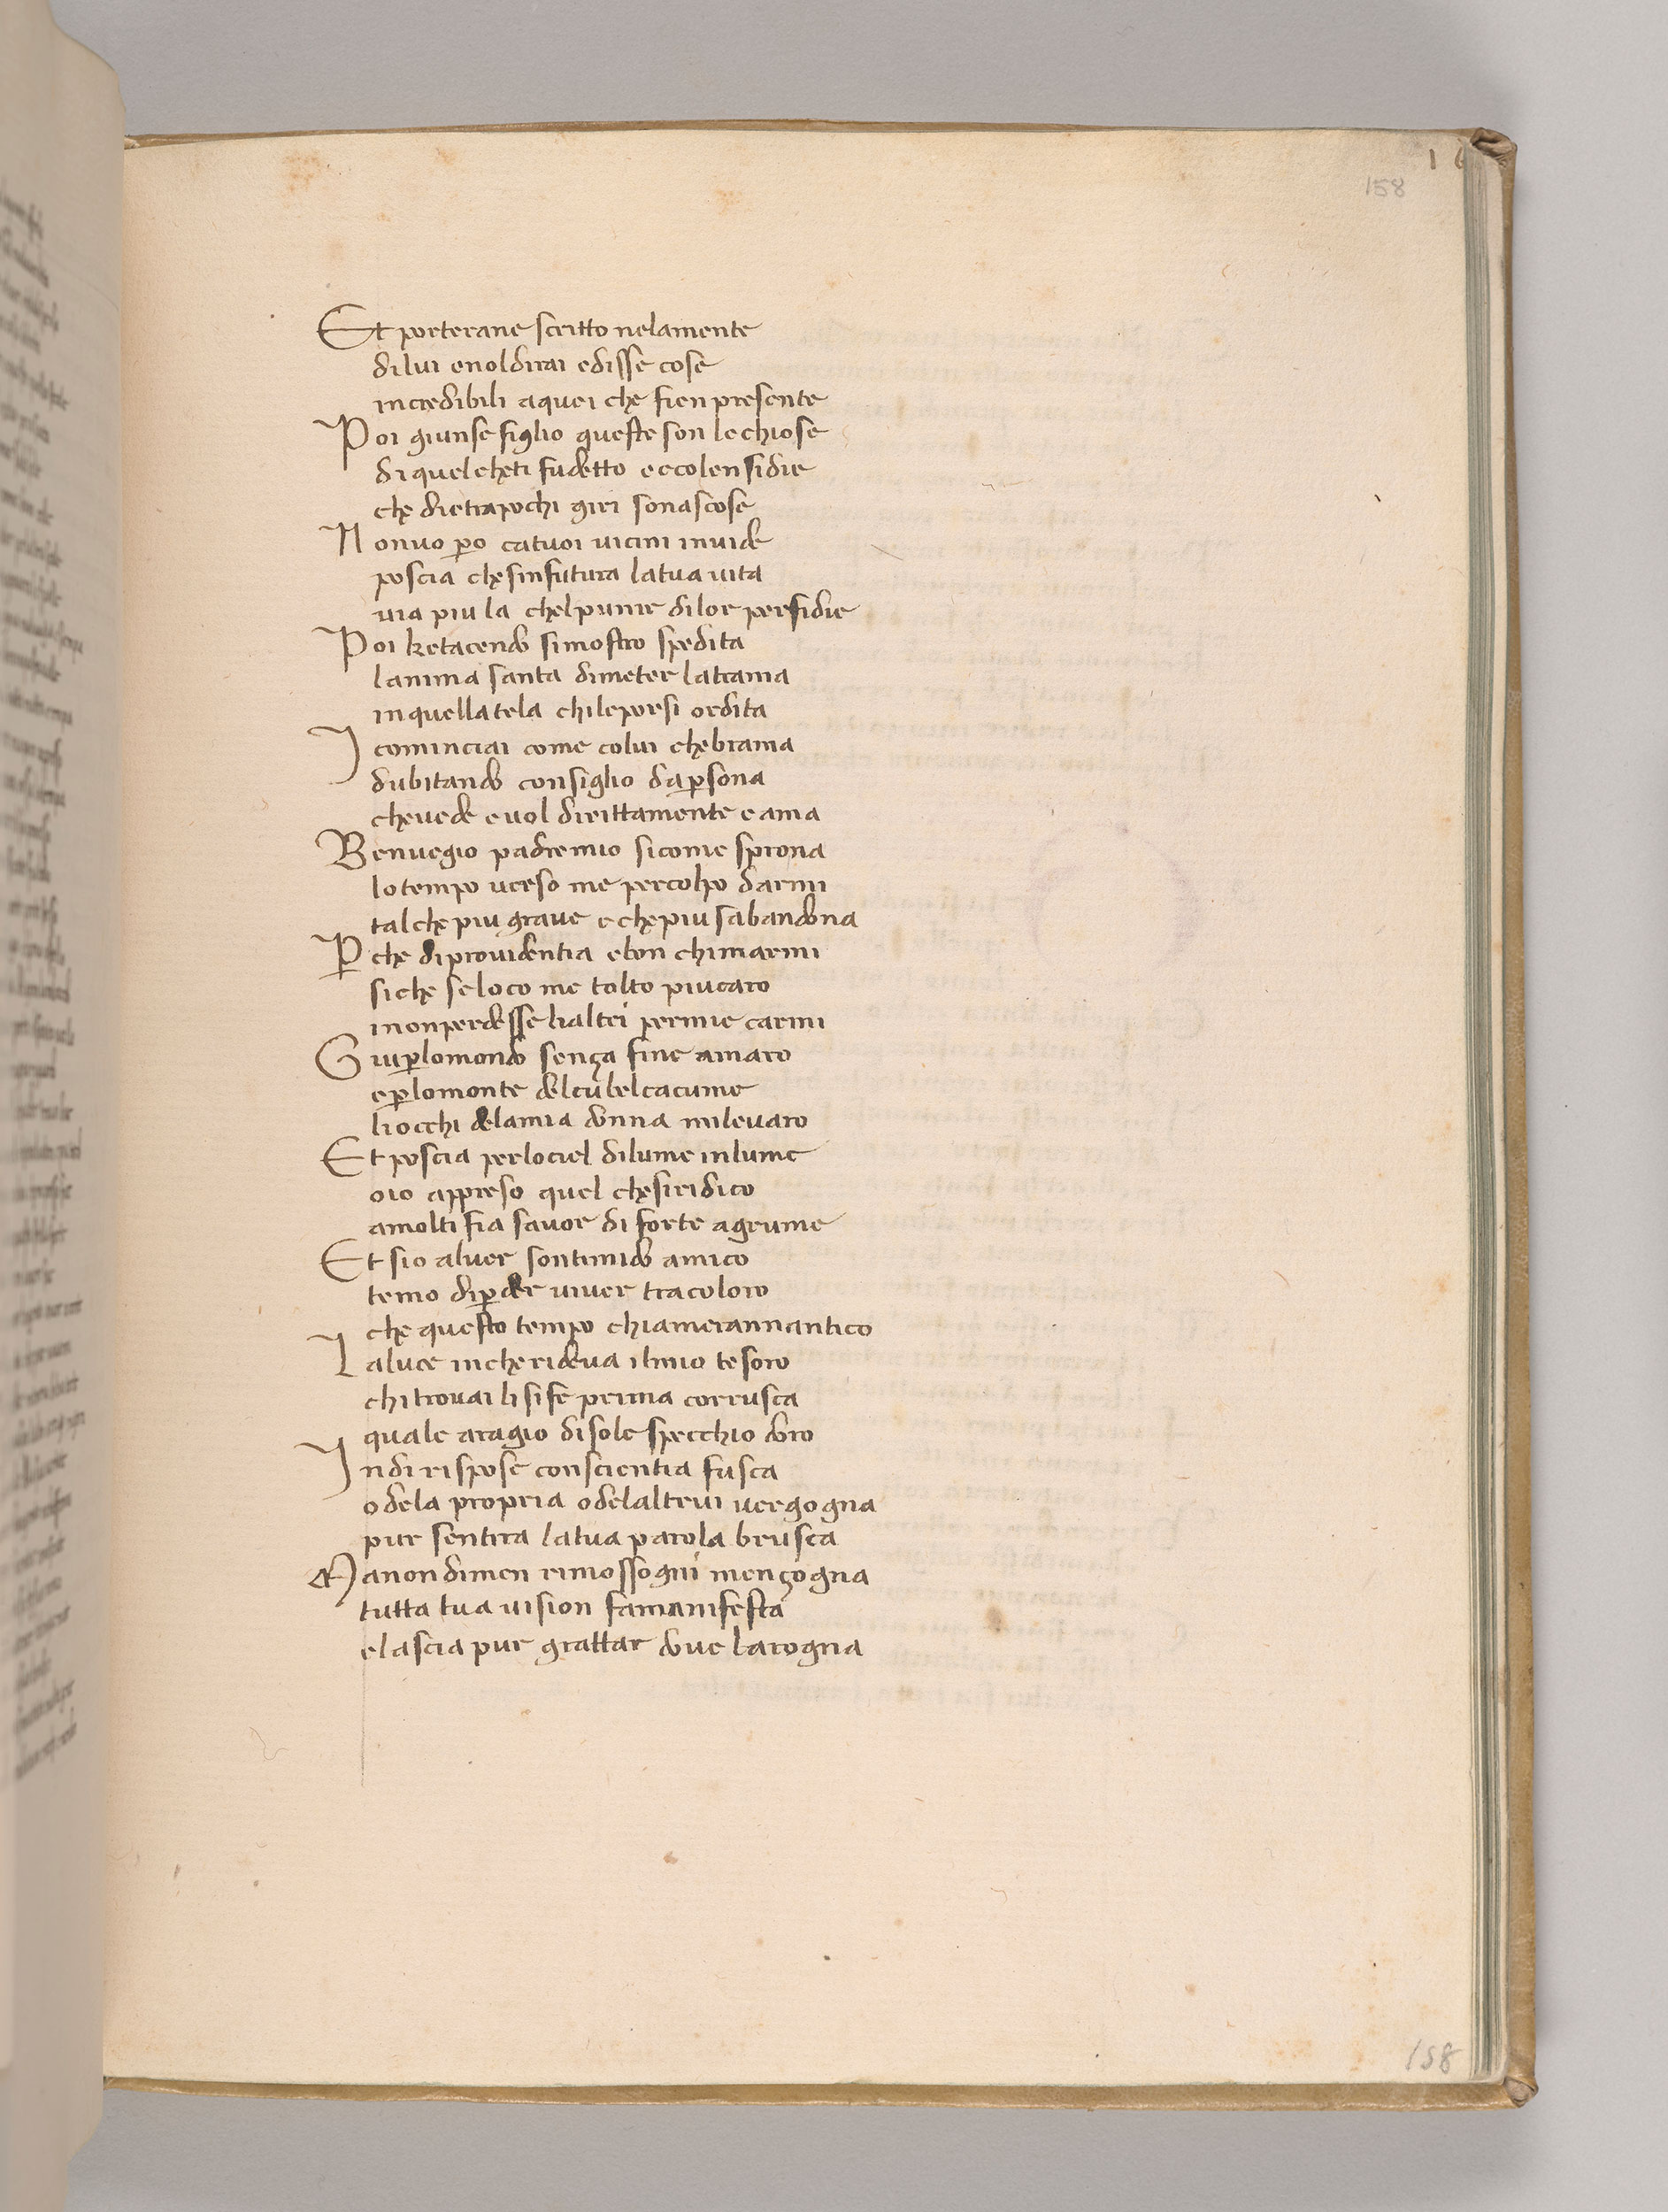 1
158
Et porterane scritto nelamente
dilui enoldirai edisse cose
incredibili aquei che fien presente
Poi giunse figlio queste son lechiose
di quel cheti fudetto eccolensidie
che dietrapochi giri sonascose
Nonuo ꝑo catuoi uicini inuide
poscia chesinfutura latua uita
uia piu la chelpunir dilor persidie
Poi ketacendo simostro spedita
lanima santa dimeter latrama
inquellatela chileporsi ordita
Jcominciai come colui chebrama
dubitando consiglio daꝑsona
cheuede euol dirittamente eama
Benuegio padremio sicome sprona
lotempo uerso me percolpo darmi
talche piu graue echepiu sabandona
Ꝑche diprouidentia ebon chimarmi
siche seloco me tolto piucaro
inonperdesse lialtri permie carmi
Giuꝑlomondo sença fine amaro
eꝑlomonte delcubelcacume
liocchi delamia donna mileuaro
Et poscia perlociel dilume inlume
oio appreso quel chesiridico
amolti fia sauor di forte agrume
Et sio aluer sontimido amico
temo diꝑder uiuer tracoloro
che questo tempo chiamerannantico
Laluce incherideua ilmio tesoro
chitrouai lisife prima corrusca
quale aragio disole specchio doro
Jndi rispose conscientia fusca
odela propria odelaltrui uergogna
pur sentira latua parola brusca
Manondimen rimossogni mençogna
tutta tua uision famanifesta
elascia pur grattar doue larogna
158